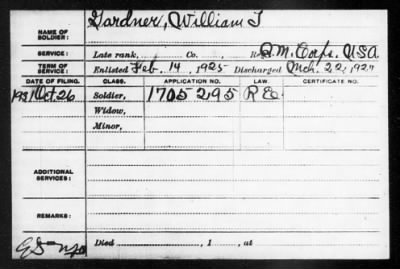 NAME OF SOLDIER: Gardner, William T
SERVICE: Late rank, Co. Q.M. Corps. USA
TERM OF SERVICE: Enlisted Feb. 14, 1925 Discharged Mch. 22, 1927
DATE OF FILING. CLASS. APPLICATION NO. LAW. CERTIFICATE NO.
1931 Oct. 26 Soldier, 1705295 RE
Widow,
Minor,
ADDITIONAL SERVICES:
REMARKS:
Died , 1 , at